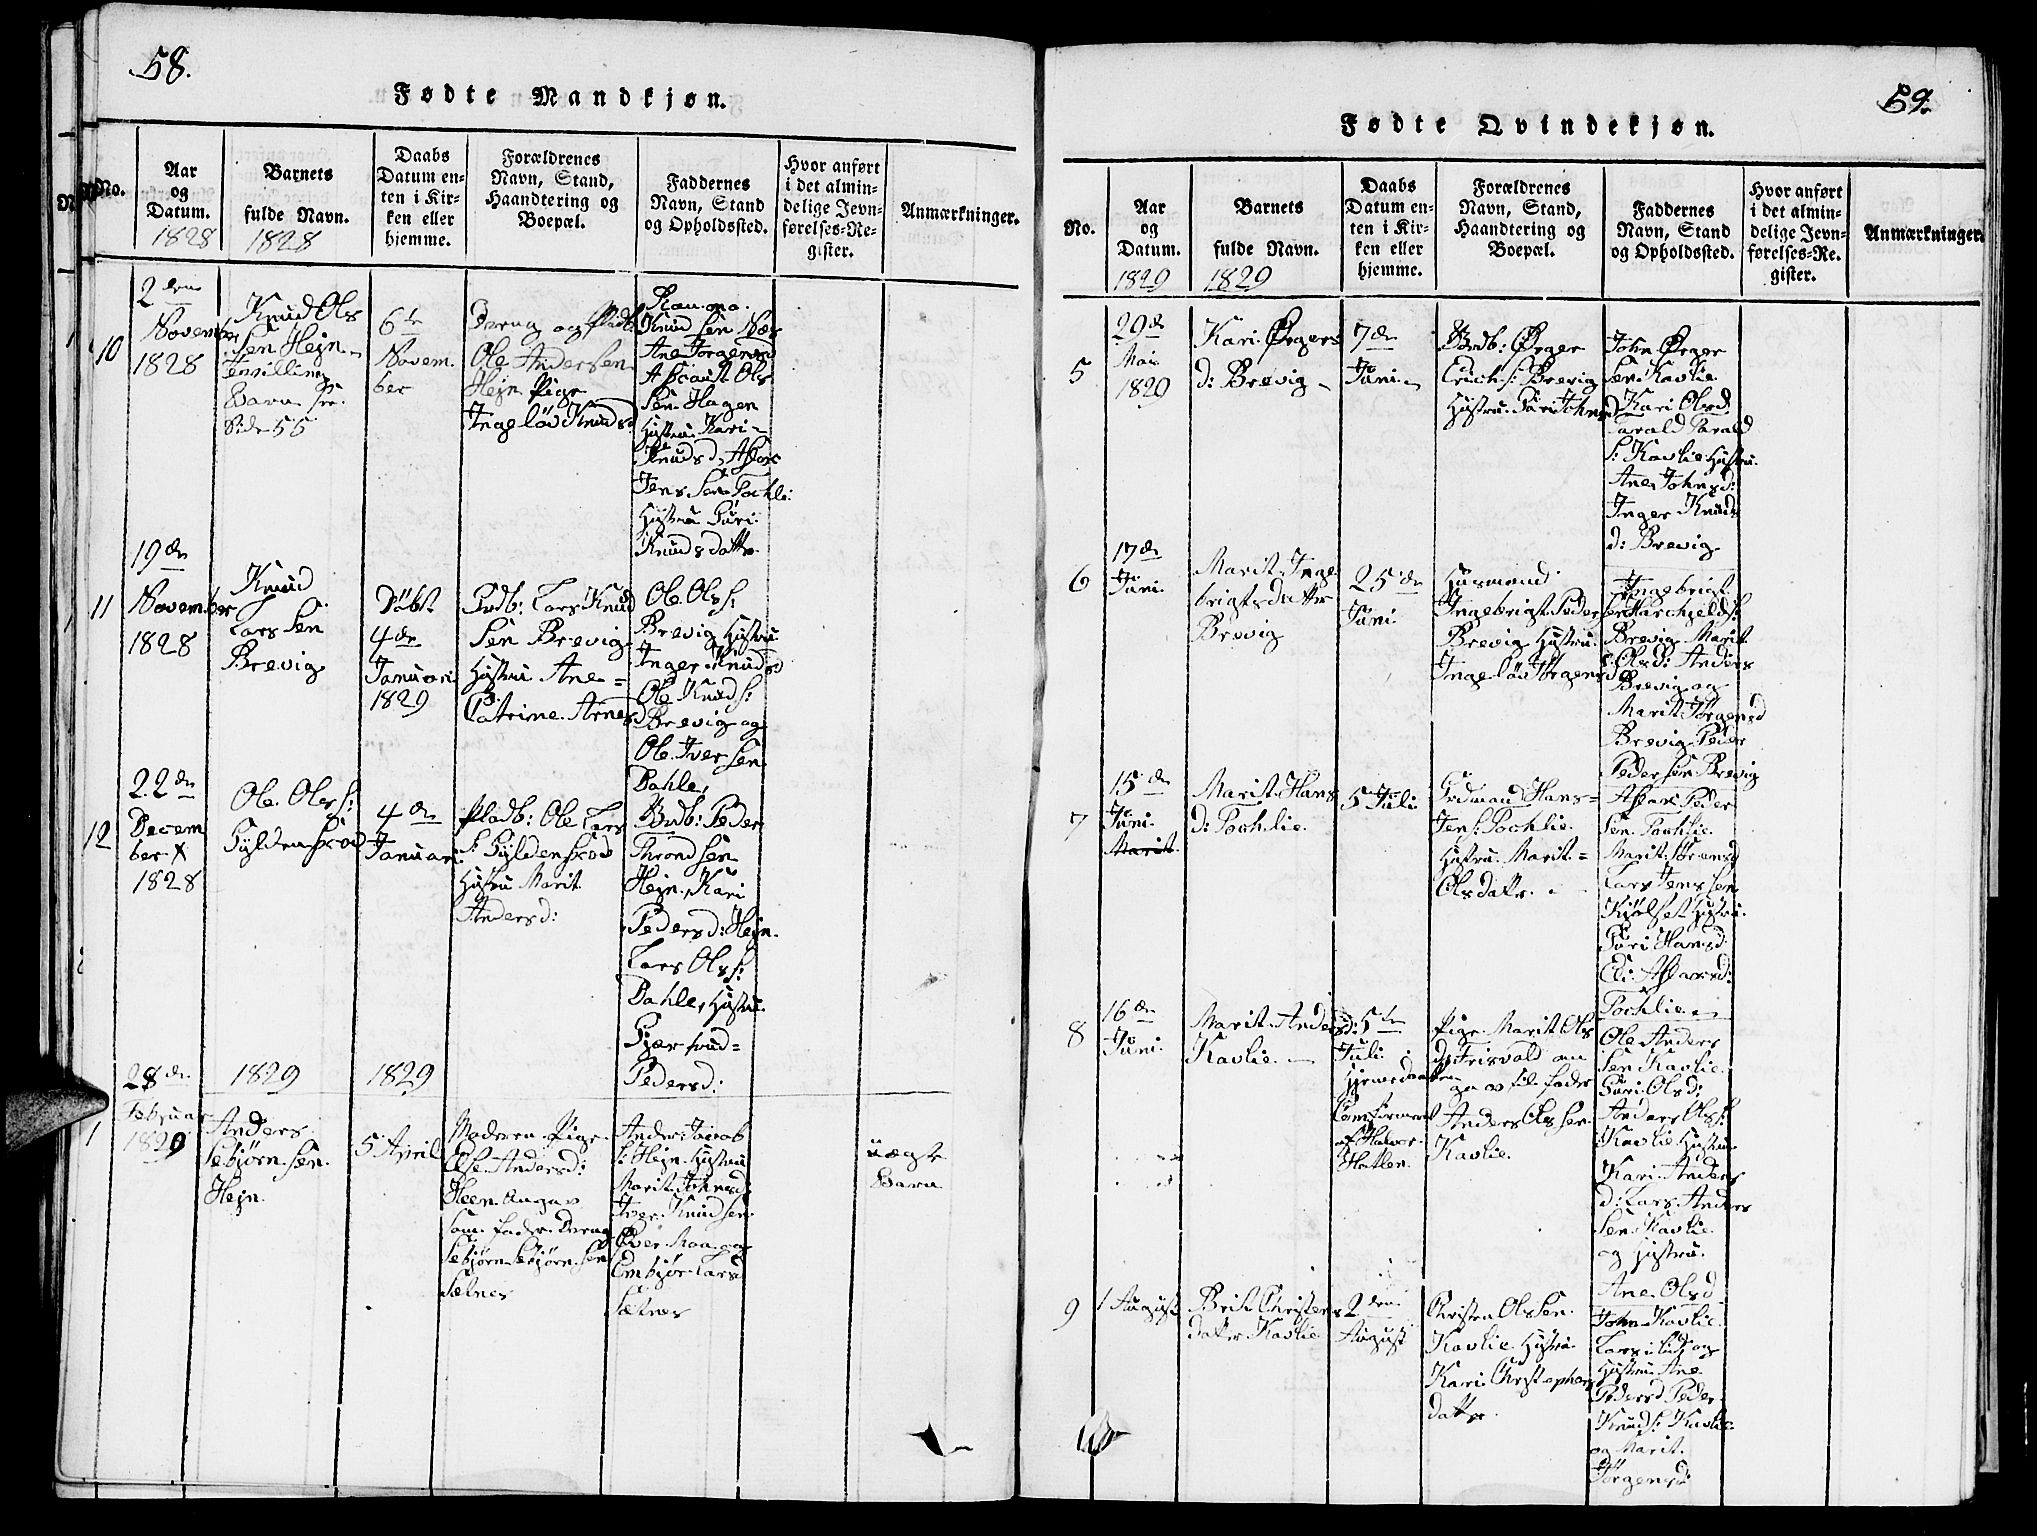 58.
Fødte Mandkjøn.
No.
Aar
og
Datum.
1828
Barnets
fulde Navn.
1828
Daabs
Datum en-
ten i Kir-
ken eller
hjemme.
Forældrenes
Navn, Stand,
Haandtering og
Boepæl.
Faddernes
Navn, Stand
og Opholdssted.
Hvor anført
i det almin-
delige Jevn-
førelses-Re-
gister.
Anmærkninger.
10
2den
November
1828
Knud Ols
Sen Hejn
Tvilling
Barn
Side 55
6te
Novem
ber
Dreng og
Ole Andersen
Hejn Pige
Ingeløv Knudsd
Knud Sen Næs
Ane Jørgensd
Ols
Sen Hagen
Hustru Kari
Knudsd
Jens Sen Tochli
Hustru Guri
Knudsdatter
11
19de
November
1828
Knud
Lars Sen
Brevig
Døbt
4de
Januari
1829
Lars Knud
Sen Brevig
Hustru Ane =
Catrine Arnesd
Ole Ols S:
Brevig Hustru
Inger Knudsd
Ole Knud S:
Brevig og
Ole Iver Sen
Dahle,
12
22de
Decem
ber X
1828
Ole Ols S:
Gyldenskod
4de
Januari
Pladb: Ole Lars
S: Gyldenskod
Hustru Marit
Andersd:
Peder
Thrond Sen
Hejn, Kari
Pedersd: Hejn
Lars Ols S:
Dahle, Hustru
Gjertrud =
Pedersd:
1829
1829
1
28de
Februar
1829
Anders
Sebjørn Sen
Hejn
5 April
Moderen Pige
Else Andersd:
Heen
som fader Dreng
Sebjørn Sebjørn Sen
Sætnes
Anders Jacob
S: Hejn Hustru
Marit Johnsd
Iver Knud Sen
og
Embjør Larsd
Sætnes
uægte
Barn
59.
Fødte Qvindekjøn.
No.
Aar
og
Datum.
1829
Barnets
fulde Navn.
1829
Daabs
Datum en-
ten i Kir-
ken eller
hjemme.
Forældrenes
Navn, Stand,
Haandtering og
Boepæl.
Faddernes
Navn, Stand
og Opholdssted.
Hvor anført
i det almin-
delige Jevn-
førelses-Re-
gister.
Anmærkninger.
5
29de
Mai
1829
Kari Ørgers
d: Brevig
7de
Juni
Ørger
Erich S: Brevig
Hustru Guri Johnsd
John Ørger
Sen Kavlie
Kari Olsd:
S: Kavlie Hustru
Ane Johnsd:
Inger Knuds
d: Brevig
6
17de
Juni
Marit Inge
brigtsdatter
Brevig
25de
Juni
Husmand
Ingebrigt Peders
Brevig Hustru
Ingeløv Jørgensd
Ingebrigt
Brevig Marit
Olsd: Anders
Brevig og
Marit Jørgensd
Brevig Peder
Peder Sen Brevig
7
15de
Juni
Marit
Marit Hans
d: Tochlie
5 Juli
Hans =
Jen S: Tochlie
Hustru Marit =
Olsdatter
Peder
Sen Tochlie
Marit
Lars Jens Sen
Hustru
Guri Hansd
Tochlie
8
16de
Juni
Marit Andersd:
Kavlie
5te
Juli
Hjemmedøbt
Confirmert
af
Pige Marit Ols
d: Frisvold
fader
Anders Ols Sen
Kavlie
Ole Anders
Sen Kavlie
Guri Olsd:
Anders Ols S:
Kavlie Hustru
Kari Anders
d: Lars Anders
Sen Kavlie
og Hustru
Ane Olsd
9
1 August
Brit Christens
datter Kavlie
2den
August
Christen Ols Sen
Kavlie Hustru
Kari Christophers
datter
John Kavlie
Lars og
Hustru Ane
Pedersd Peder
Knud S: Kavlie
og Marit
Jørgensd